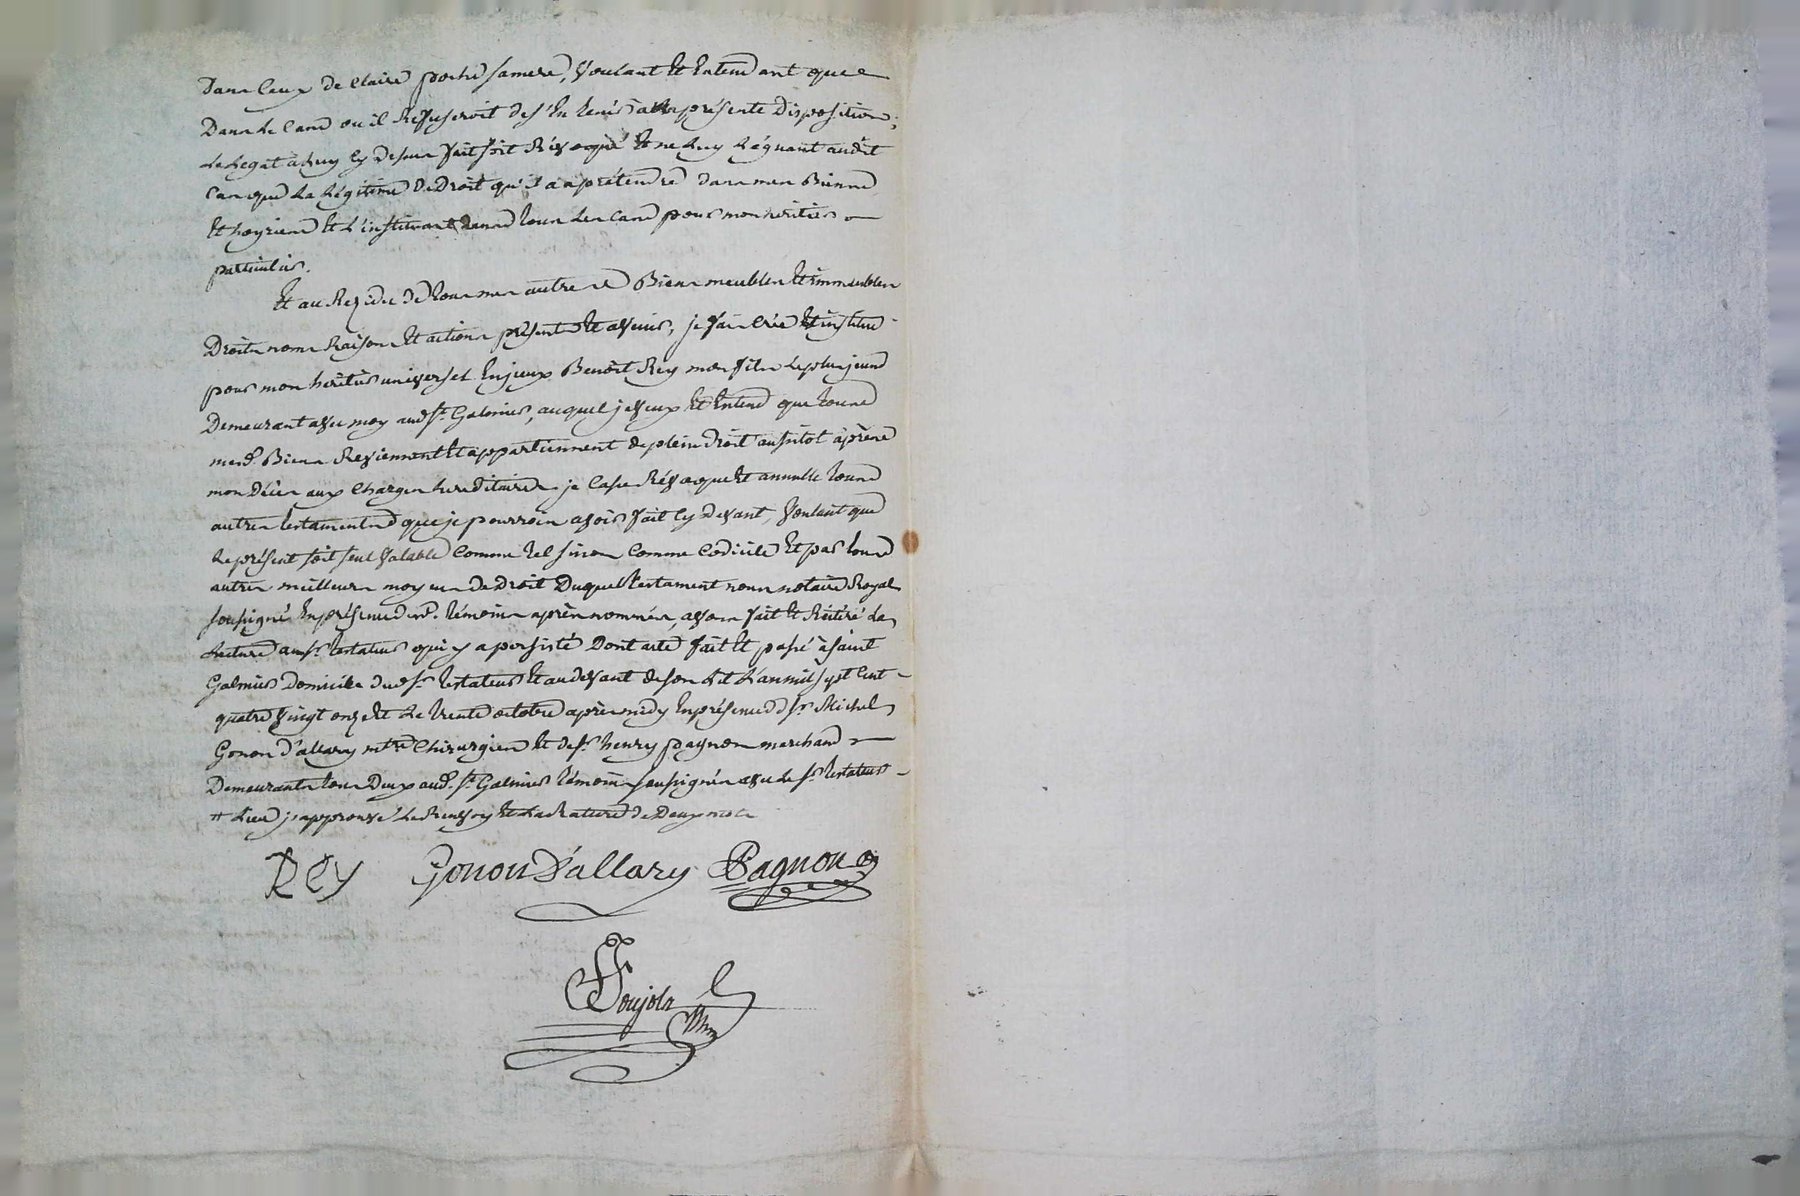 Dans Ceux de Claire poché sa mere, voulant Et Entendant que
Dans le Cas ou il Refuseroit de s'En tenir a la présente disposition,
Le Legat à Luy cy dessus fait soit Révoqué Et ne Luy Léguant audit
Cas que La Légitime de Droit qu'il a a prétendre dans mes Biens
Et hoyries Et L'instituant dans tous Les Cas pour mon héritier
particulier.
Et au Rezidu de tous mes autres Biens meubles Et immeubles
Droits noms Raisons Et actions présents Et avenir, je fais Crée Et institue
pour mon héritier universel Benoit Rey mon fils Le plus jeune
Demeurant avec moy aud. St. Galmier, auquel je veux Et Entend que tous
mesd. Biens Reviennent Et appartiennent de plein Droit aussitot après
mon Décès aux Charges héréditaires je Casse Révoque Et annulle tous
autres testaments que je pourrois avoir fait Cy Devant, voulant que
Le présent soit seul valable Comme tel sinon Comme Codicile Et par tous
autres meilleurs moyens de Droit Duquel testament nous notaire Royal
soussigné En présence des témoins après nommés, avons fait Et Réitéré La
Lecture aud. Sr. testateur qui y a persisté Dont acte fait Et passé à saint
Galmier Domicile dud. Sr. testateur Et au devant de son Lit L'an mil sept Cent
quatre vingt onze Et Le trente octobre après midy En présence de Sr. Michel
Gonon D'allary mtre Chirurgien Et de Sr. henry pagnon marchand
Demeurants tous Deux aud. St. Galmier témoins soussignés avec Le Sr. testateur
Lieu j'approuve Le Renvoy Et La Rature de Deux mots
Rey Gonon D'allary Pagnon